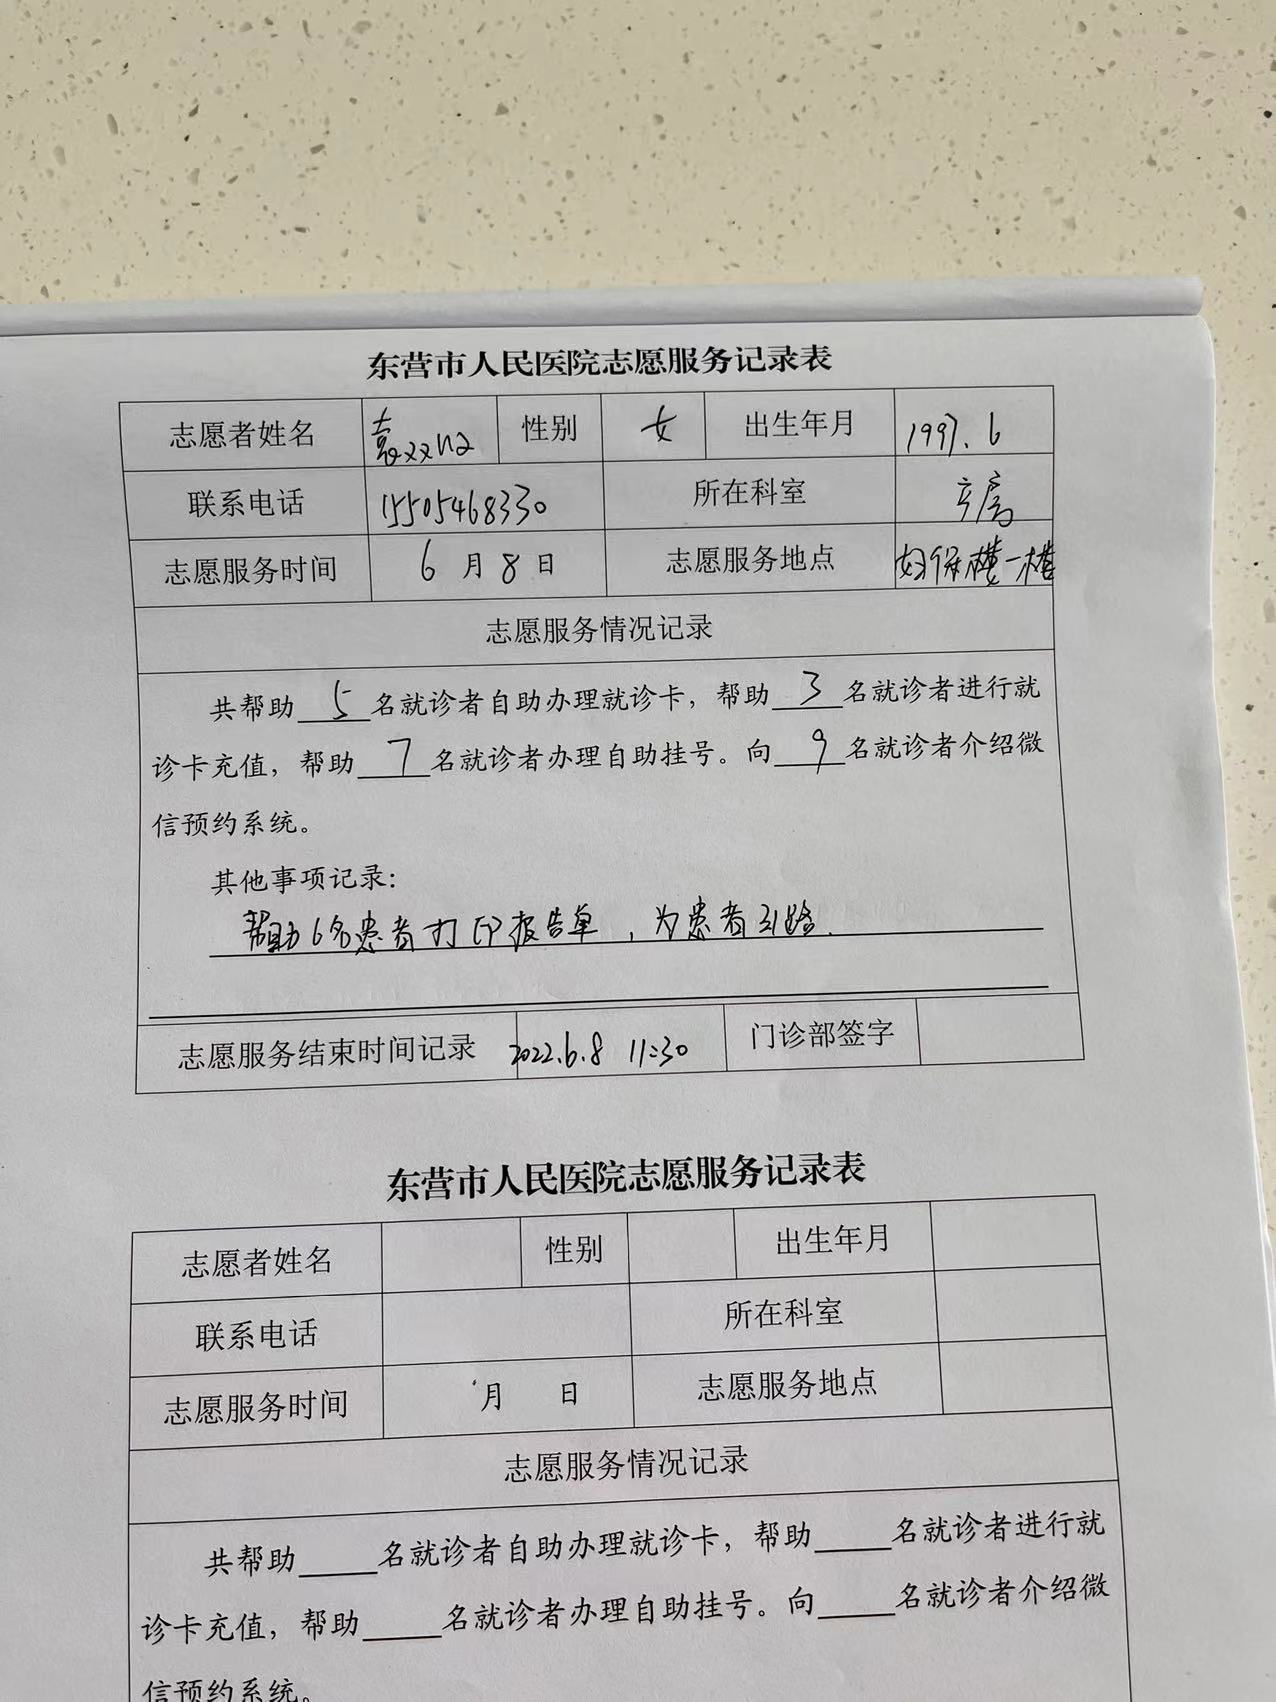 东营市人民医院志愿服务记录表
志愿者姓名 袁双 性别 女 出生年月 1997.6
联系电话 15505468330 所在科室 产房
志愿服务时间 6月8日 志愿服务地点 妇保楼一楼
志愿服务情况记录
共帮助5名就诊者自助办理就诊卡，帮助3名就诊者进行就
诊卡充值，帮助7名就诊者办理自助挂号。向9名就诊者介绍微
信预约系统。
其他事项记录：
帮助6名患者打印报告单，为患者引路.
志愿服务结束时间记录 2022.6.8 11:30 门诊部签字
东营市人民医院志愿服务记录表
志愿者姓名 性别 出生年月
联系电话 所在科室
志愿服务时间 月 日 志愿服务地点
志愿服务情况记录
共帮助_____名就诊者自助办理就诊卡，帮助_____名就诊者进行就
诊卡充值，帮助_____名就诊者办理自助挂号。向_____名就诊者介绍微
信预约系统。